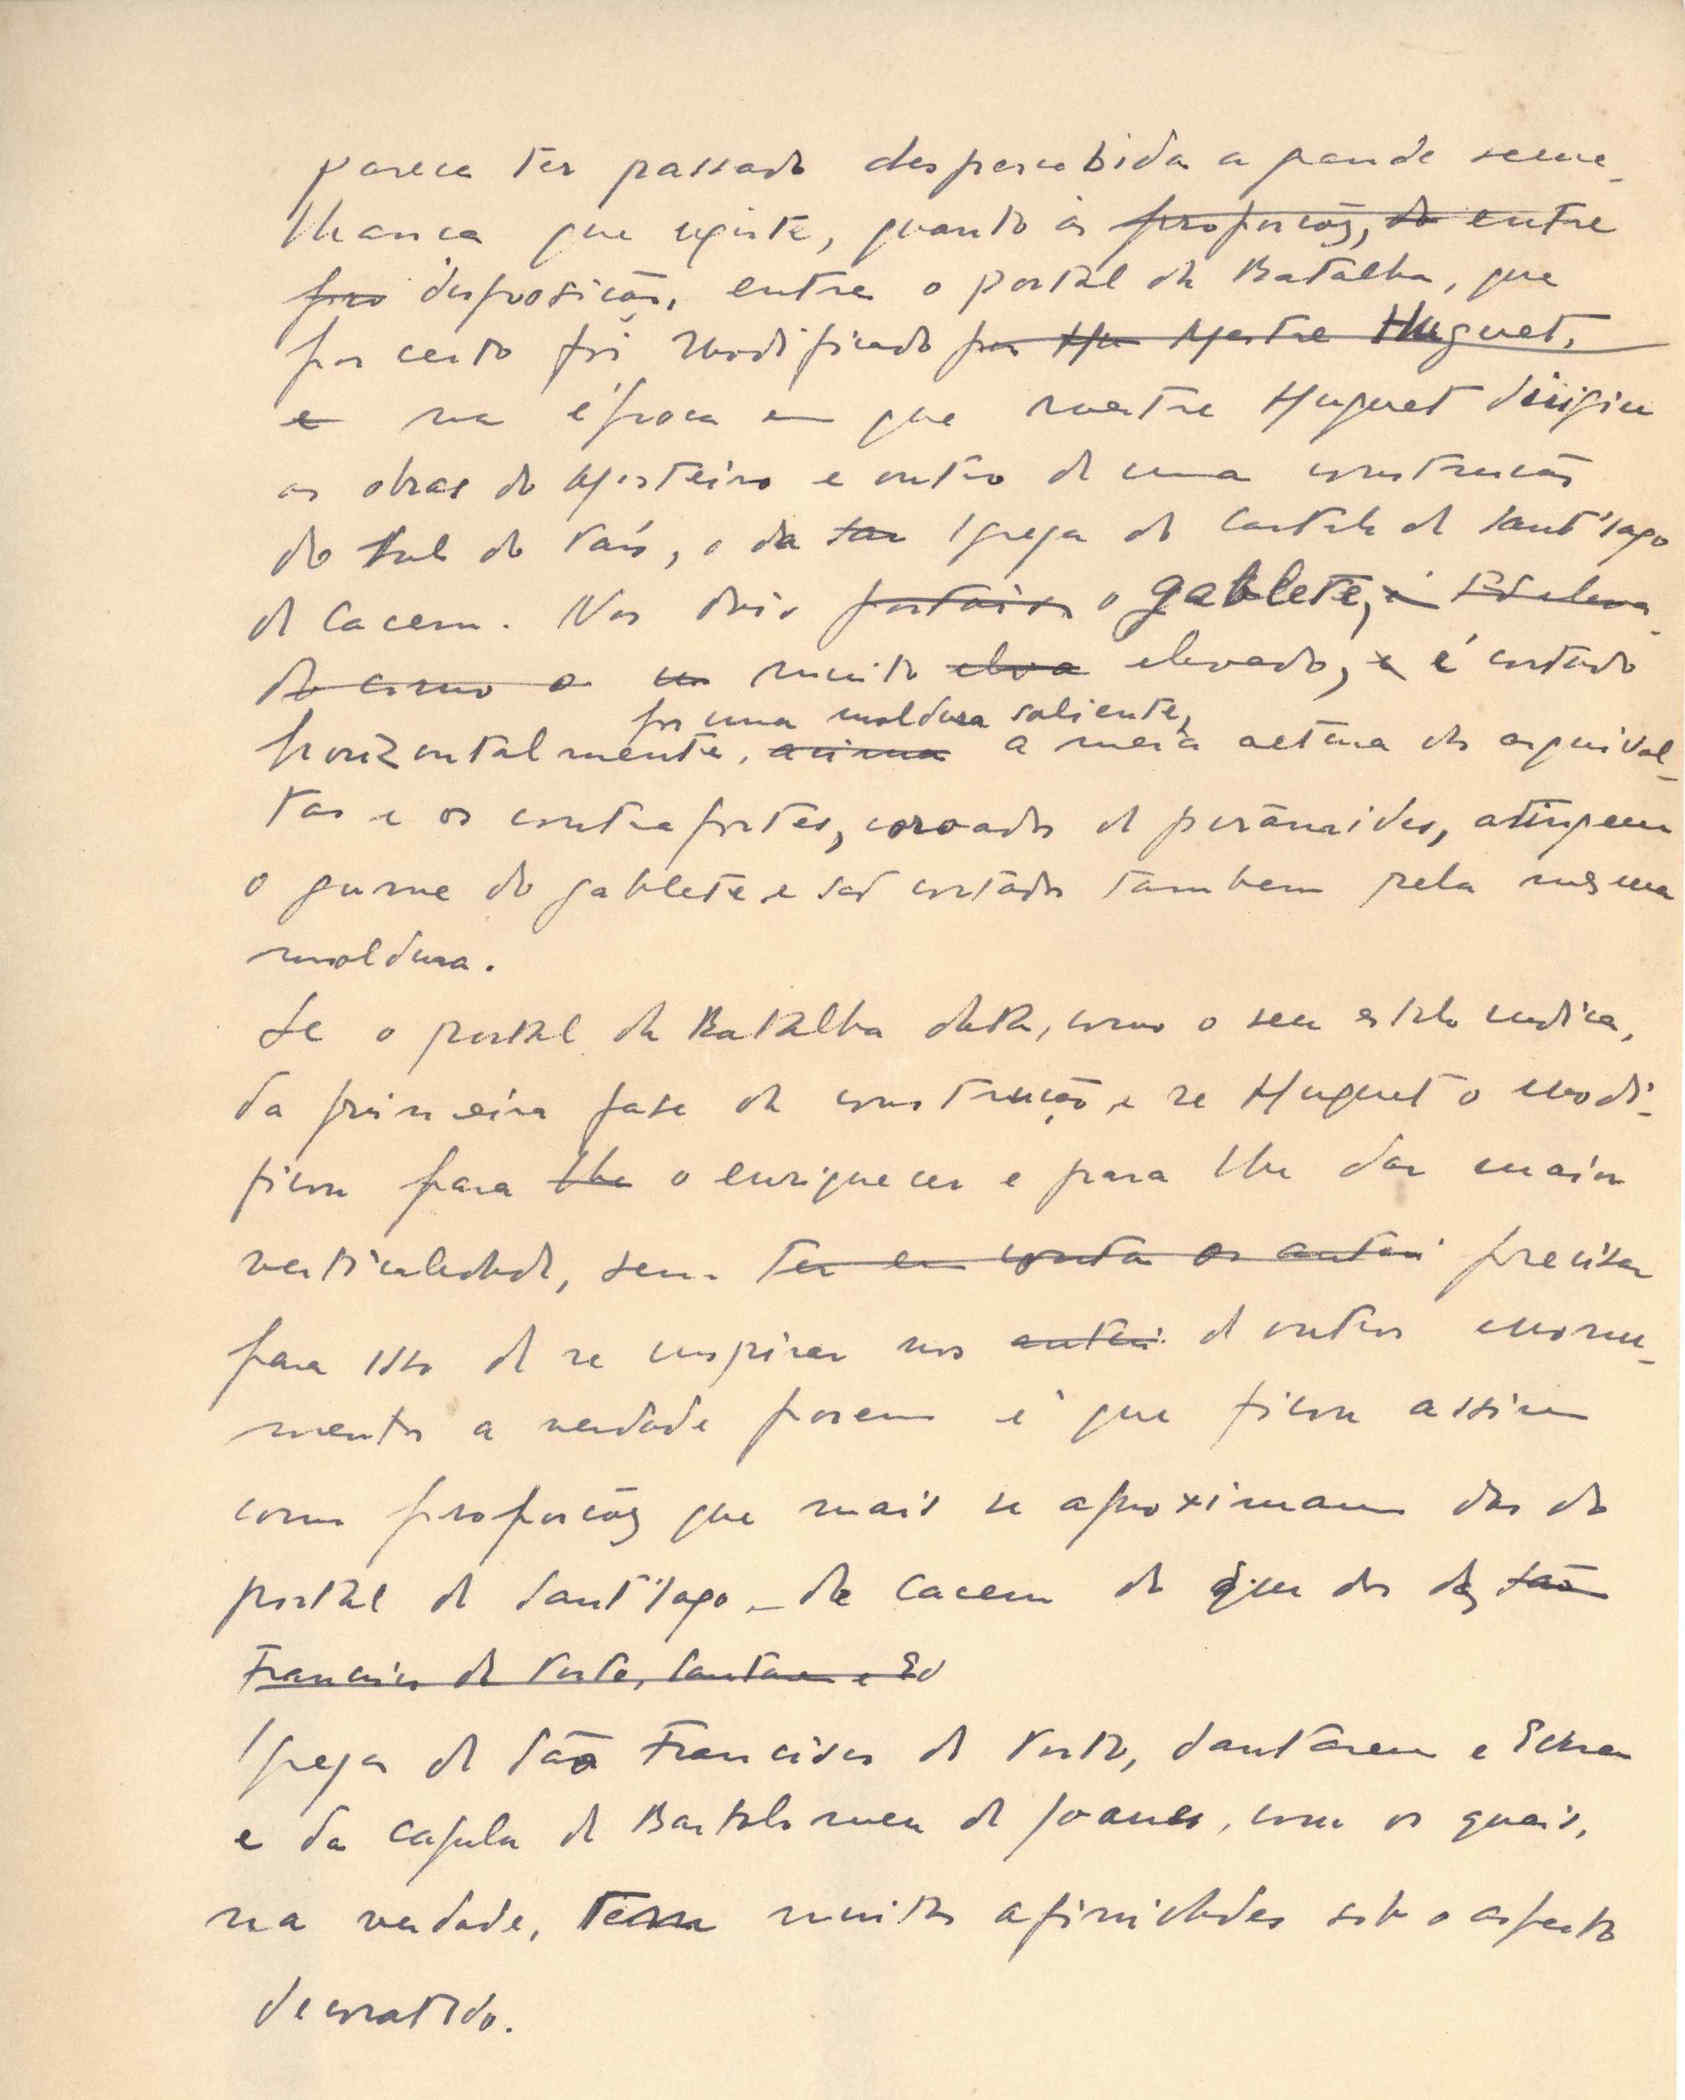 parece ter passado despercebida a grande seme-
lhança que existe, quanto ás proporções, do entre
pro disposição, entre o portal da Batalha, que
por certo foi modificado por Hu Mestre Huguet,
e na época em que mestre Huguet dirigiu
as obras do Mosteiro e outro de uma construção
do Sul do País, o da Igreja do Castelo de Sant'Iago
de Cacem. Nos dois portais o gablete,
do como o um muito eleva elevado, e é cortado
por uma moldura saliente,
horizontalmente, acima a meia altura das arquivol-
tas e os contrafortes, coroados de pirâmides, atingem
o gume do gablete e são cortados tambem pela mesma
moldura.
Se o portal da Batalha data, como o seu estilo indica,
da primeira fase da construção e se Huguet o modi-
ficou para lhe o enriquecer e para lhe dar maior
verticalidade, sem ter em conta os anteri precisar
para isso de se inspirar nos anteri de outros monu-
mentos a verdade porem é que ficou assim
com proporções que mais se aproximam das do
portal de Sant'Iago de Cacem do que das das São
Francisco do Porto, Santarem e Ev
Igrejas de São Francisco do Porto, Santarem e Evora
e da capela de Bartolomeu de Joanes, com os quais,
na verdade, tem muitas afinidades sob o aspecto
decorativo.